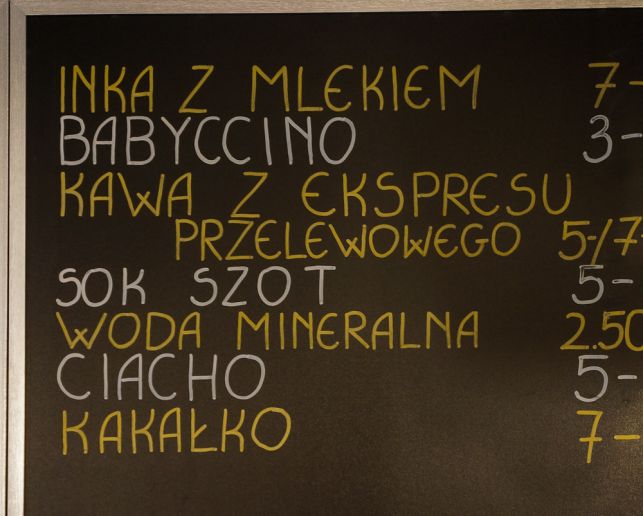 INKA Z MLEKIEM 7-
BABYCCINO 3-
KAWA Z EKSPRESU
PRZELEWOWEGO 5-/7-
SOK SZOT 5-
WODA MINERALNA 2.50
CIACHO 5-
KAKAŁKO 7-